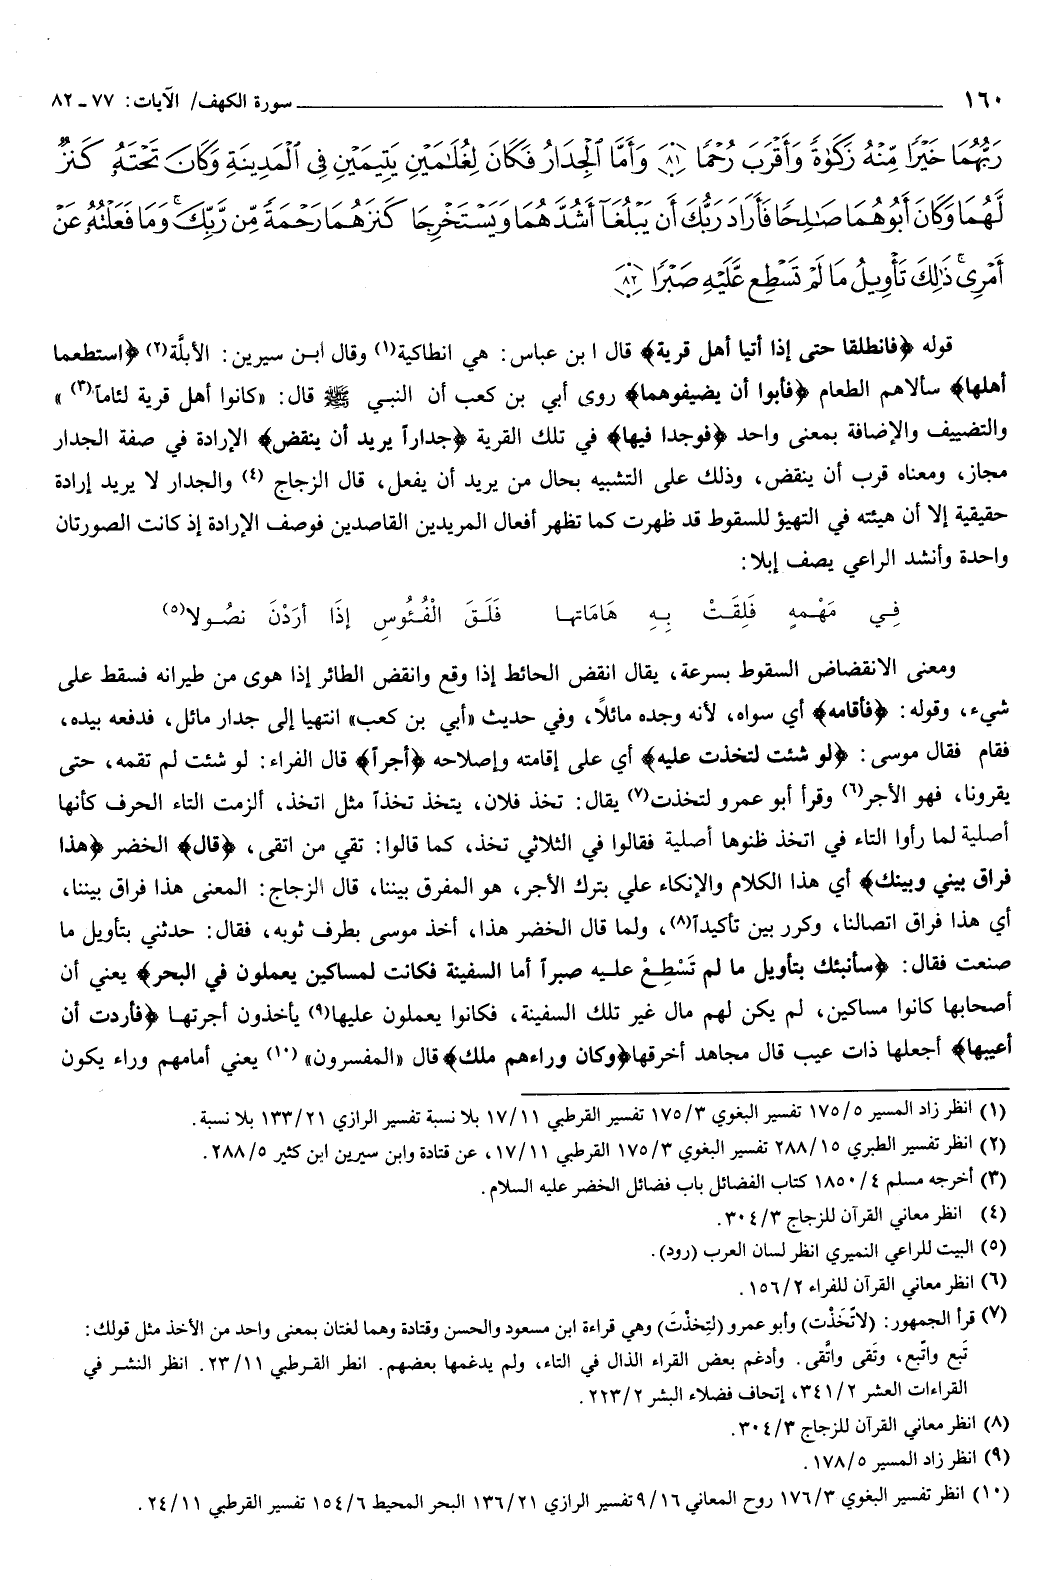 ١٦٠ سورة الكهف/ الآيات: ٧٧ ـ ٨٢
رَبُّهُمَا خَيْرًا مِّنْهُ زَكَوٰةً وَأَقْرَبَ رُحْمًا ﴿٨١﴾ وَأَمَّا ٱلْجِدَارُ فَكَانَ لِغُلَـٰمَيْنِ يَتِيمَيْنِ فِى ٱلْمَدِينَةِ وَكَانَ تَحْتَهُۥ كَنزٌ
لَّهُمَا وَكَانَ أَبُوهُمَا صَـٰلِحًا فَأَرَادَ رَبُّكَ أَن يَبْلُغَآ أَشُدَّهُمَا وَيَسْتَخْرِجَا كَنزَهُمَا رَحْمَةً مِّن رَّبِّكَ ۚ وَمَا فَعَلْتُهُۥ عَنْ
أَمْرِى ۚ ذَٰلِكَ تَأْوِيلُ مَا لَمْ تَسْطِع عَّلَيْهِ صَبْرًا ﴿٨٢﴾
قوله ﴿فانطلقا حتى إذا أتيا أهل قرية﴾ قال ابن عباس: هي انطاكية(١) وقال ابن سيرين: الأبلَّة(٢) ﴿استطعما
أهلها﴾ سألاهم الطعام ﴿فأبوا أن يضيفوهما﴾ روى أبي بن كعب أن النبي ﷺ قال: «كانوا أهل قرية لئاماً(٣)»
والتضييف والإضافة بمعنى واحد ﴿فوجدا فيها﴾ في تلك القرية ﴿جداراً يريد أن ينقض﴾ الإرادة في صفة الجدار
مجاز، ومعناه قرب أن ينقض، وذلك على التشبيه بحال من يريد أن يفعل، قال الزجاج (٤) والجدار لا يريد إرادة
حقيقية إلا أن هيئته في التهيؤ للسقوط قد ظهرت كما تظهر أفعال المريدين القاصدين فوصف الإرادة إذ كانت الصورتان
واحدة وأنشد الراعي يصف إبلا:
فِـي مَهْـمهٍ فَلِقَـتْ بِـهِ هَامَاتهـا فَلَـقَ الْفُـئُوسِ إذَا أَرَدْنَ نصُـولا(٥)
ومعنى الانقضاض السقوط بسرعة، يقال انقض الحائط إذا وقع وانقض الطائر إذا هوى من طيرانه فسقط على
شيء، وقوله: ﴿فأقامه﴾ أي سواه، لأنه وجده مائلاً، وفي حديث «أبي بن كعب» انتهيا إلى جدار مائل، فدفعه بيده،
فقام فقال موسى: ﴿لو شئت لتخذت عليه﴾ أي على إقامته وإصلاحه ﴿أجراً﴾ قال الفراء: لو شئت لم تقمه، حتى
يقرونا، فهو الأجر(٦) وقرأ أبو عمرو لتخذت(٧) يقال: تخذ فلان، يتخذ تخذاً مثل اتخذ، ألزمت التاء الحرف كأنها
أصلية لما رأوا التاء في اتخذ ظنوها أصلية فقالوا في الثلاثي تخذ، كما قالوا: تقي من اتقى، ﴿قال﴾ الخضر ﴿هذا
فراق بيني وبينك﴾ أي هذا الكلام والإنكاء علي بترك الأجر، هو المفرق بيننا، قال الزجاج: المعنى هذا فراق بيننا،
أي هذا فراق اتصالنا، وكرر بين تأكيداً(٨)، ولما قال الخضر هذا، أخذ موسى بطرف ثوبه، فقال: حدثني بتأويل ما
صنعت فقال: ﴿سأنبئك بتأويل ما لم تَسْطِعْ عليه صبراً أما السفينة فكانت لمساكين يعملون في البحر﴾ يعني أن
أصحابها كانوا مساكين، لم يكن لهم مال غير تلك السفينة، فكانوا يعملون عليها(٩) يأخذون أجرتهـا ﴿فأردت أن
أعيبها﴾ أجعلها ذات عيب قال مجاهد أخرقها﴿وكان وراءهم ملك﴾قال «المفسرون» (١٠) يعني أمامهم وراء يكون
(١) انظر زاد المسير ١٧٥/٥ تفسير البغوي ١٧٥/٣ تفسير القرطبي ١٧/١١ بلا نسبة تفسير الرازي ١٣٣/٢١ بلا نسبة.
(٢) انظر تفسير الطبري ٢٨٨/١٥ تفسير البغوي ١٧٥/٣ القرطبي ١٧/١١، عن قتادة وابن سيرين ابن كثير ٢٨٨/٥.
(٣) أخرجه مسلم ١٨٥٠/٤ كتاب الفضائل باب فضائل الخضر عليه السلام.
(٤) انظر معاني القرآن للزجاج ٣٠٤/٣.
(٥) البيت للراعي النميري انظر لسان العرب (رود).
(٦) انظر معاني القرآن للفراء ١٥٦/٢.
(٧) قرأ الجمهور: (لاتَّخَذْت) وأبو عمرو (لتِخذْتَ) وهي قراءة ابن مسعود والحسن وقتادة وهما لغتان بمعنى واحد من الأخذ مثل قولك:
تَبع واتبع، وتَقى واتَّقى. وأدغم بعض القراء الذال في التاء، ولم يدغمها بعضهم. انظر القـرطبي ٢٣/١١. انظر النشـر في
القراءات العشر ٣٤١/٢، إتحاف فضلاء البشر ٢٢٣/٢.
(٨) انظر معاني القرآن للزجاج ٣٠٤/٣.
(٩) انظر زاد المسير ١٧٨/٥.
(١٠) انظر تفسير البغوي ١٧٦/٣ روح المعاني ٩/١٦ تفسير الرازي ١٣٦/٢١ البحر المحيط ١٥٤/٦ تفسير القرطبي ٢٤/١١.